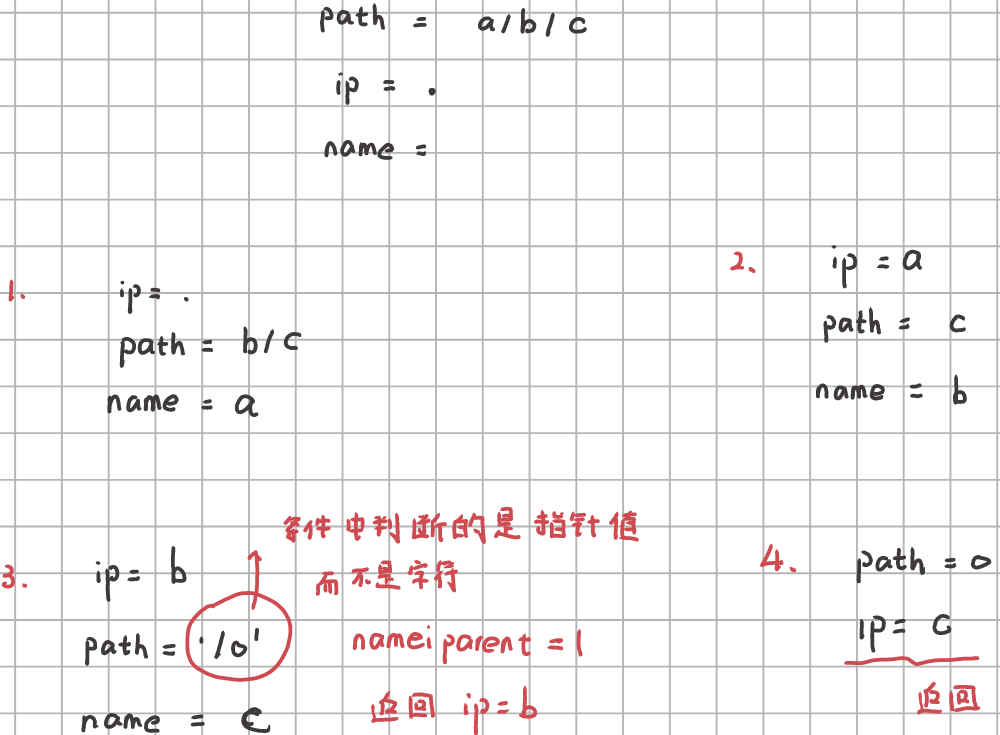 path = a/b/c
ip = .
name =
1.
ip = .
path = b/c
name = a
2.
ip = a
path = c
name = b
3.
ip = b
path = '/0'
name = c
条件中判断的是指针值
而不是字符
nameiparent = 1
返回 ip = b
4.
path = 0
ip = c
返回